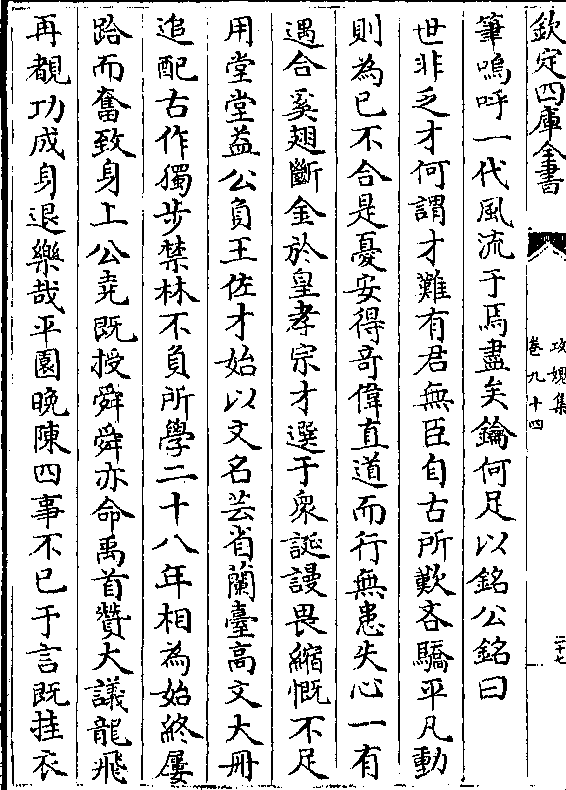 欽定四庫全書
攻媿集
卷九十四
二十七
筆嗚呼一代風流于焉盡矣鑰何足以銘公銘曰
世非乏才何謂才難有君無臣自古所歎吝驕平凡動
則為已不合是憂安得竒偉直道而行無患失心一有
遇合奚翅斷金於皇孝宗才選于衆誕謾畏縮慨不足
用堂堂益公負王佐才始以文名芸省蘭臺高文大冊
追配古作獨步禁林不負所學二十八年相為始終屢
踣而奮致身上公堯既授舜舜亦命禹首贊大議龍飛
再覩功成身退樂哉平園晚陳四事不已于言既挂衣